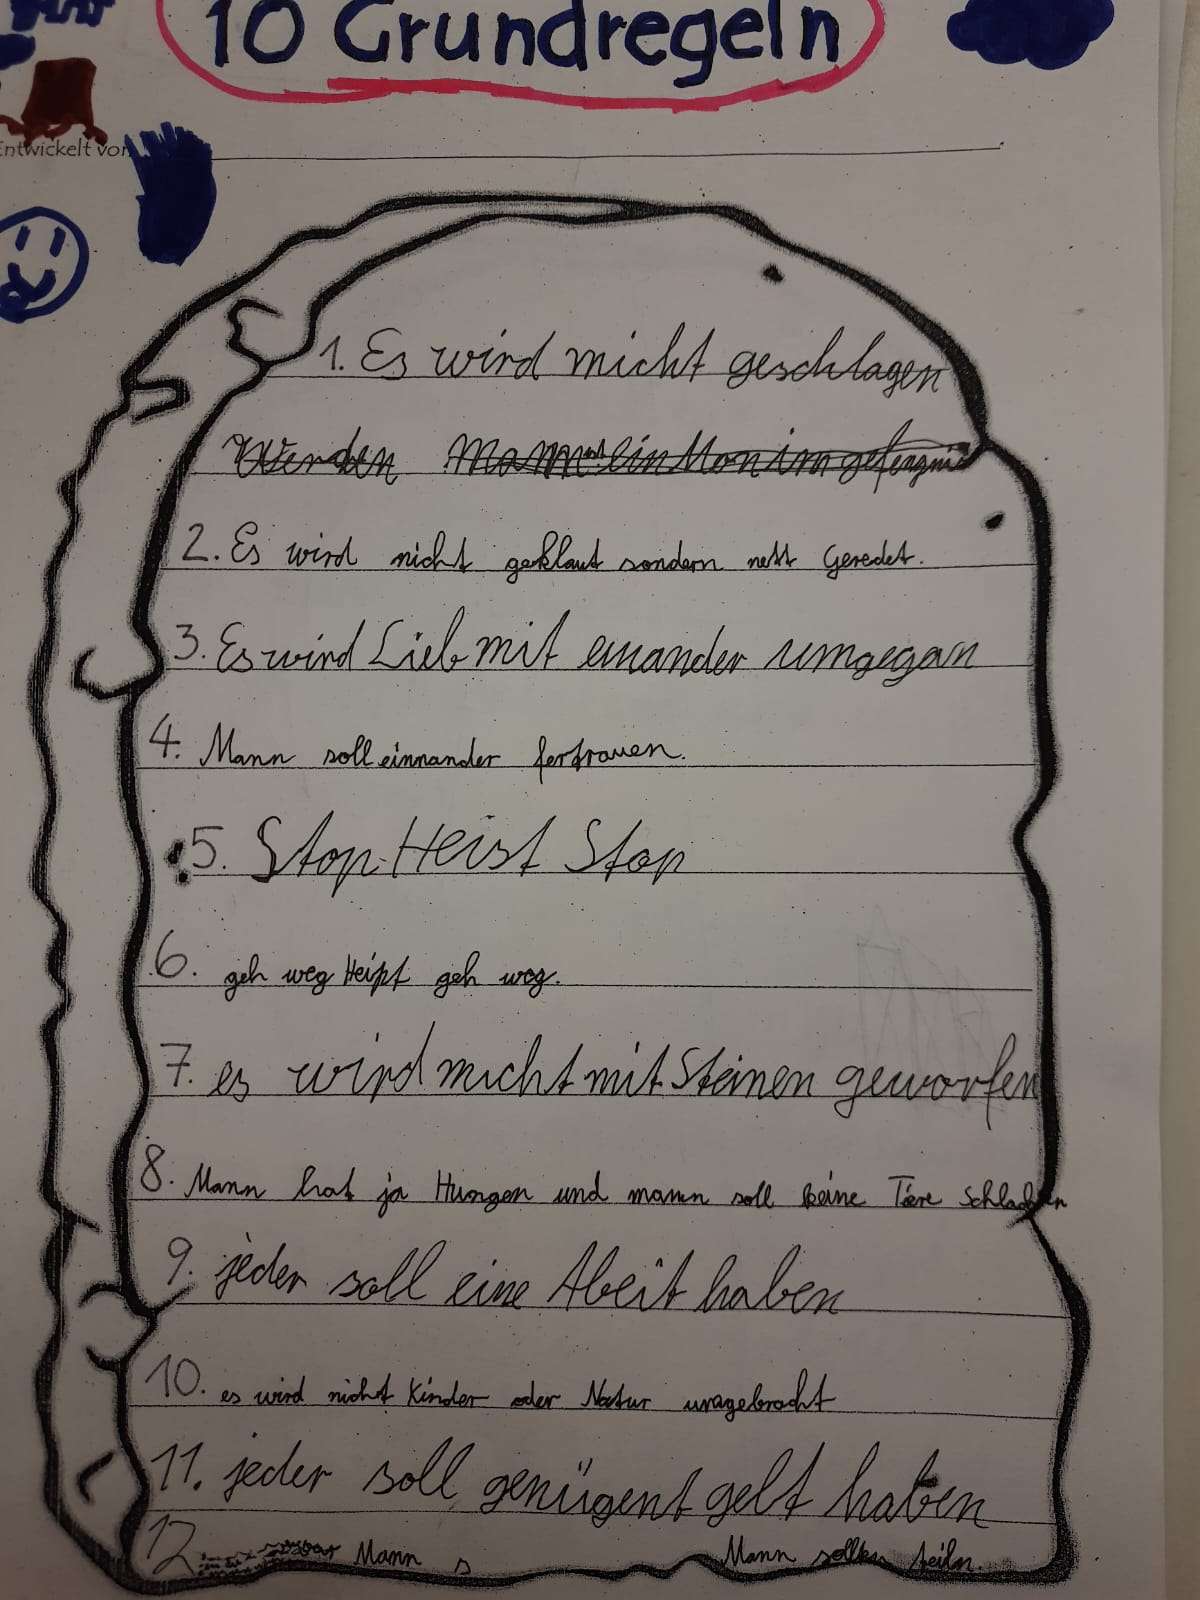 10 Grundregeln
Entwickelt von
1. Es wird nicht geschlagen
Werden Mann ein Mon im gefengnis
2. Es wird nicht geklaut sondern nett Geredet.
3. Es wird Lieb mit einander umgegan
4. Mann soll einnander fertrauen.
5. Stop Heist Stop
6. geh weg Heißt geh weg.
7. es wird nicht mit Steinen geworfen
8. Mann hat ja Hungen und mann soll keine Tiere Schlachten
9. jeder soll eine Abeit haben
10. es wird nicht Kinder oder Natur umgebracht
11. jeder soll genügent gelt haben
12. Mann s Mann sollte teiln.